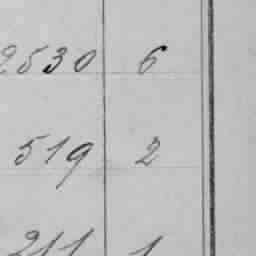 2530 6
519 2
211 1